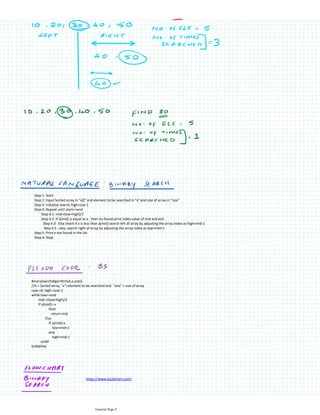 10 . 20 , 30 , 40 , 50
NO. OF ELE = 5
LEFT RIGHT
NO. OF TIMES
SEARCHED ] = 3
40 . 50
40
10 . 20 . 30 . 40 . 50
FIND 30
NO. OF ELE = 5
NO: OF TIMES
SEARCHED ] = 1
NATURAL LANGUAGE : BINARY SEARCH
Step 1: Start
Step 2: Input Sorted array in "a[]" and element to be searched in "x" and size of array in "size"
Step 3: Initialize low=0, high=size-1
Step 4: Repeat until start>=end
Step 4.1: mid=(low+high)/2
Step 4.2: if a[mid] is equal to x , then no found print index value of mid and exit
Step 4.3: Else check if x is less than a[mid] search left of array by adjusting the array index as high=mid-1
Step 4.4: else, search right of array by adjusting the array index as low=mid+1
Step 5: Print x not found in the list
Step 6: Stop
PSEUDO CODE : BS
BinarySearchAlgorithm(A,x,size)
//A = Sorted array, "x"=element to be searched and "size" = size of array
Low =0, high=size-1
while low<=end
mid =(low+high)/2
if a[mid]= x
then
return mid
Else
if a[mid]<x
low=mid+1
else
high=mid-1
endif
EndWhile
FLOWCHART
BINARY
https://www.lucidchart.com/
SEARCH
General Page 9